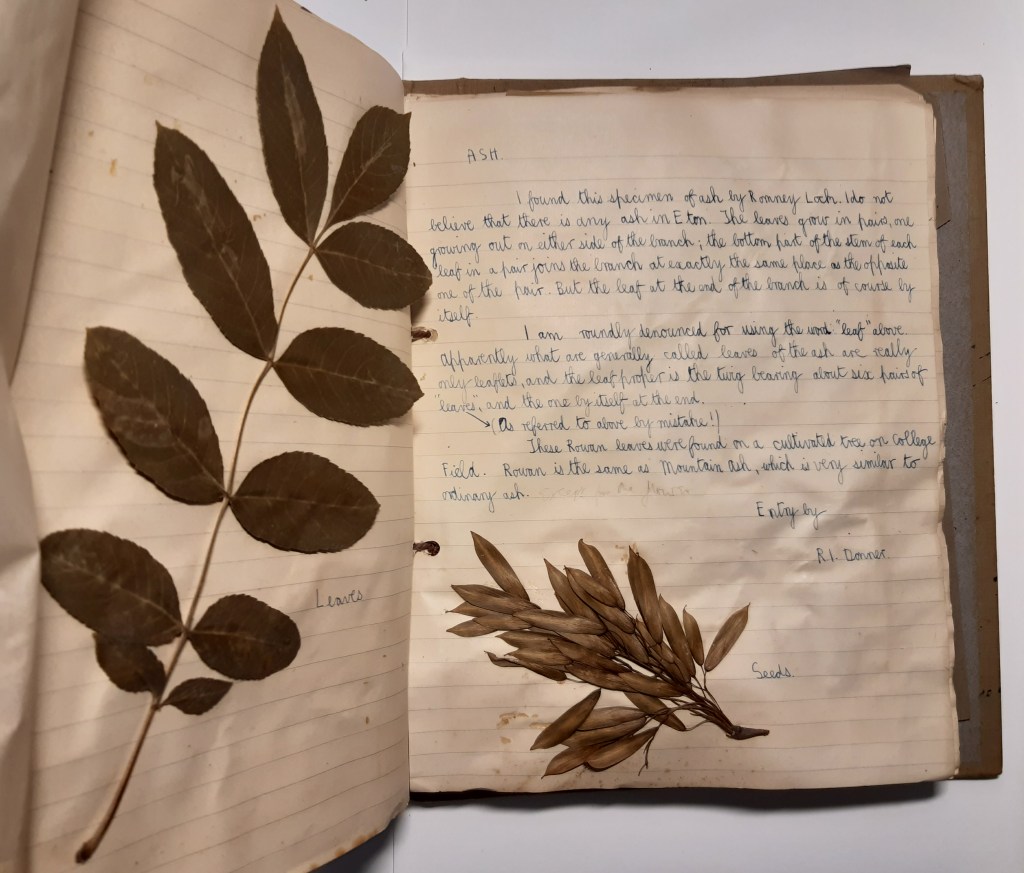 ASH.
I found this specimen of ash by Romney Loch. I do not
believe that there is any ash in Eton. The leaves grow in pairs, one
growing out on either side of the branch; the bottom part of the stem of each
leaf in a pair joins the branch at exactly the same place as the opposite
one of the pair. But the leaf at the end of the branch is of course by
itself.
I am roundly denounced for using the word "leaf" above.
Apparently what are generally called leaves of the ash are really
only leaflets, and the leaf proper is the twig bearing about six pairs of
"leaves", and the one by itself at the end.
(As referred to above by mistake!)
These Rowan leaves were found on a cultivated tree on College
Field. Rowan is the same as Mountain Ash, which is very similar to
ordinary ash.
Entry by
R.I. Donner.
Leaves
Seeds.